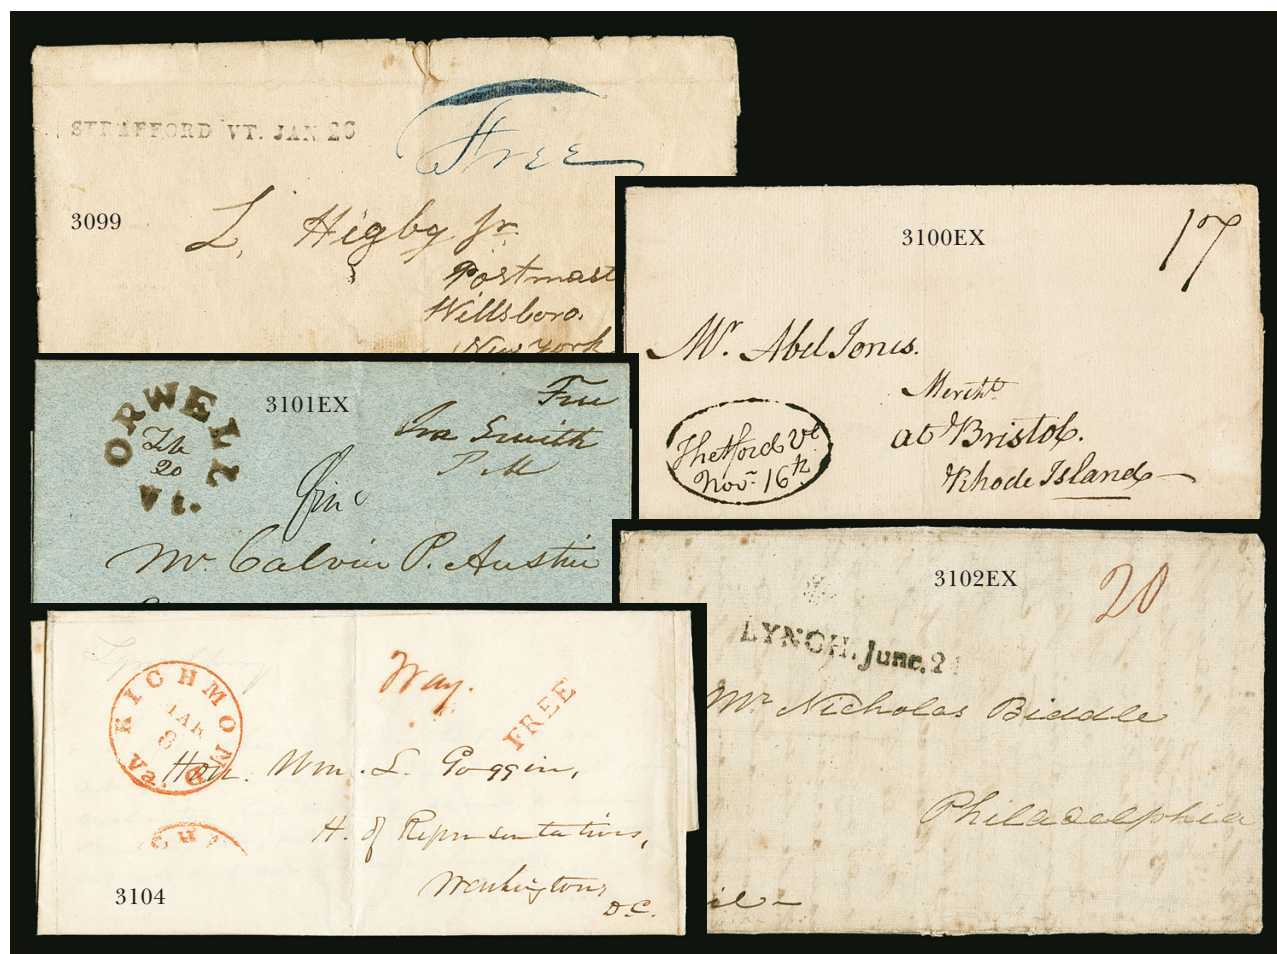 STRAFFORD VT. JAN 26
Free
3099
L. Higby Jr.
Postmast
Willsboro.
New York
3100EX
17
Mr. Abel Jones.
Mercht
at Bristol.
Rhode Island
Thetford Vt
Nov. 16th
ORWELL
Feb
20
Vt.
3101EX
Free
Ira Smith
P.M
Mr. Calvin P. Austin
3102EX
20
LYNCH. June. 24
Mr Nicholas Biddle
Philadelphia
RICHMOND
MAR
8
Va.
Way.
FREE
Hon. Wm. L. Goggin,
H. of Representatives,
Washington,
D.C.
3104